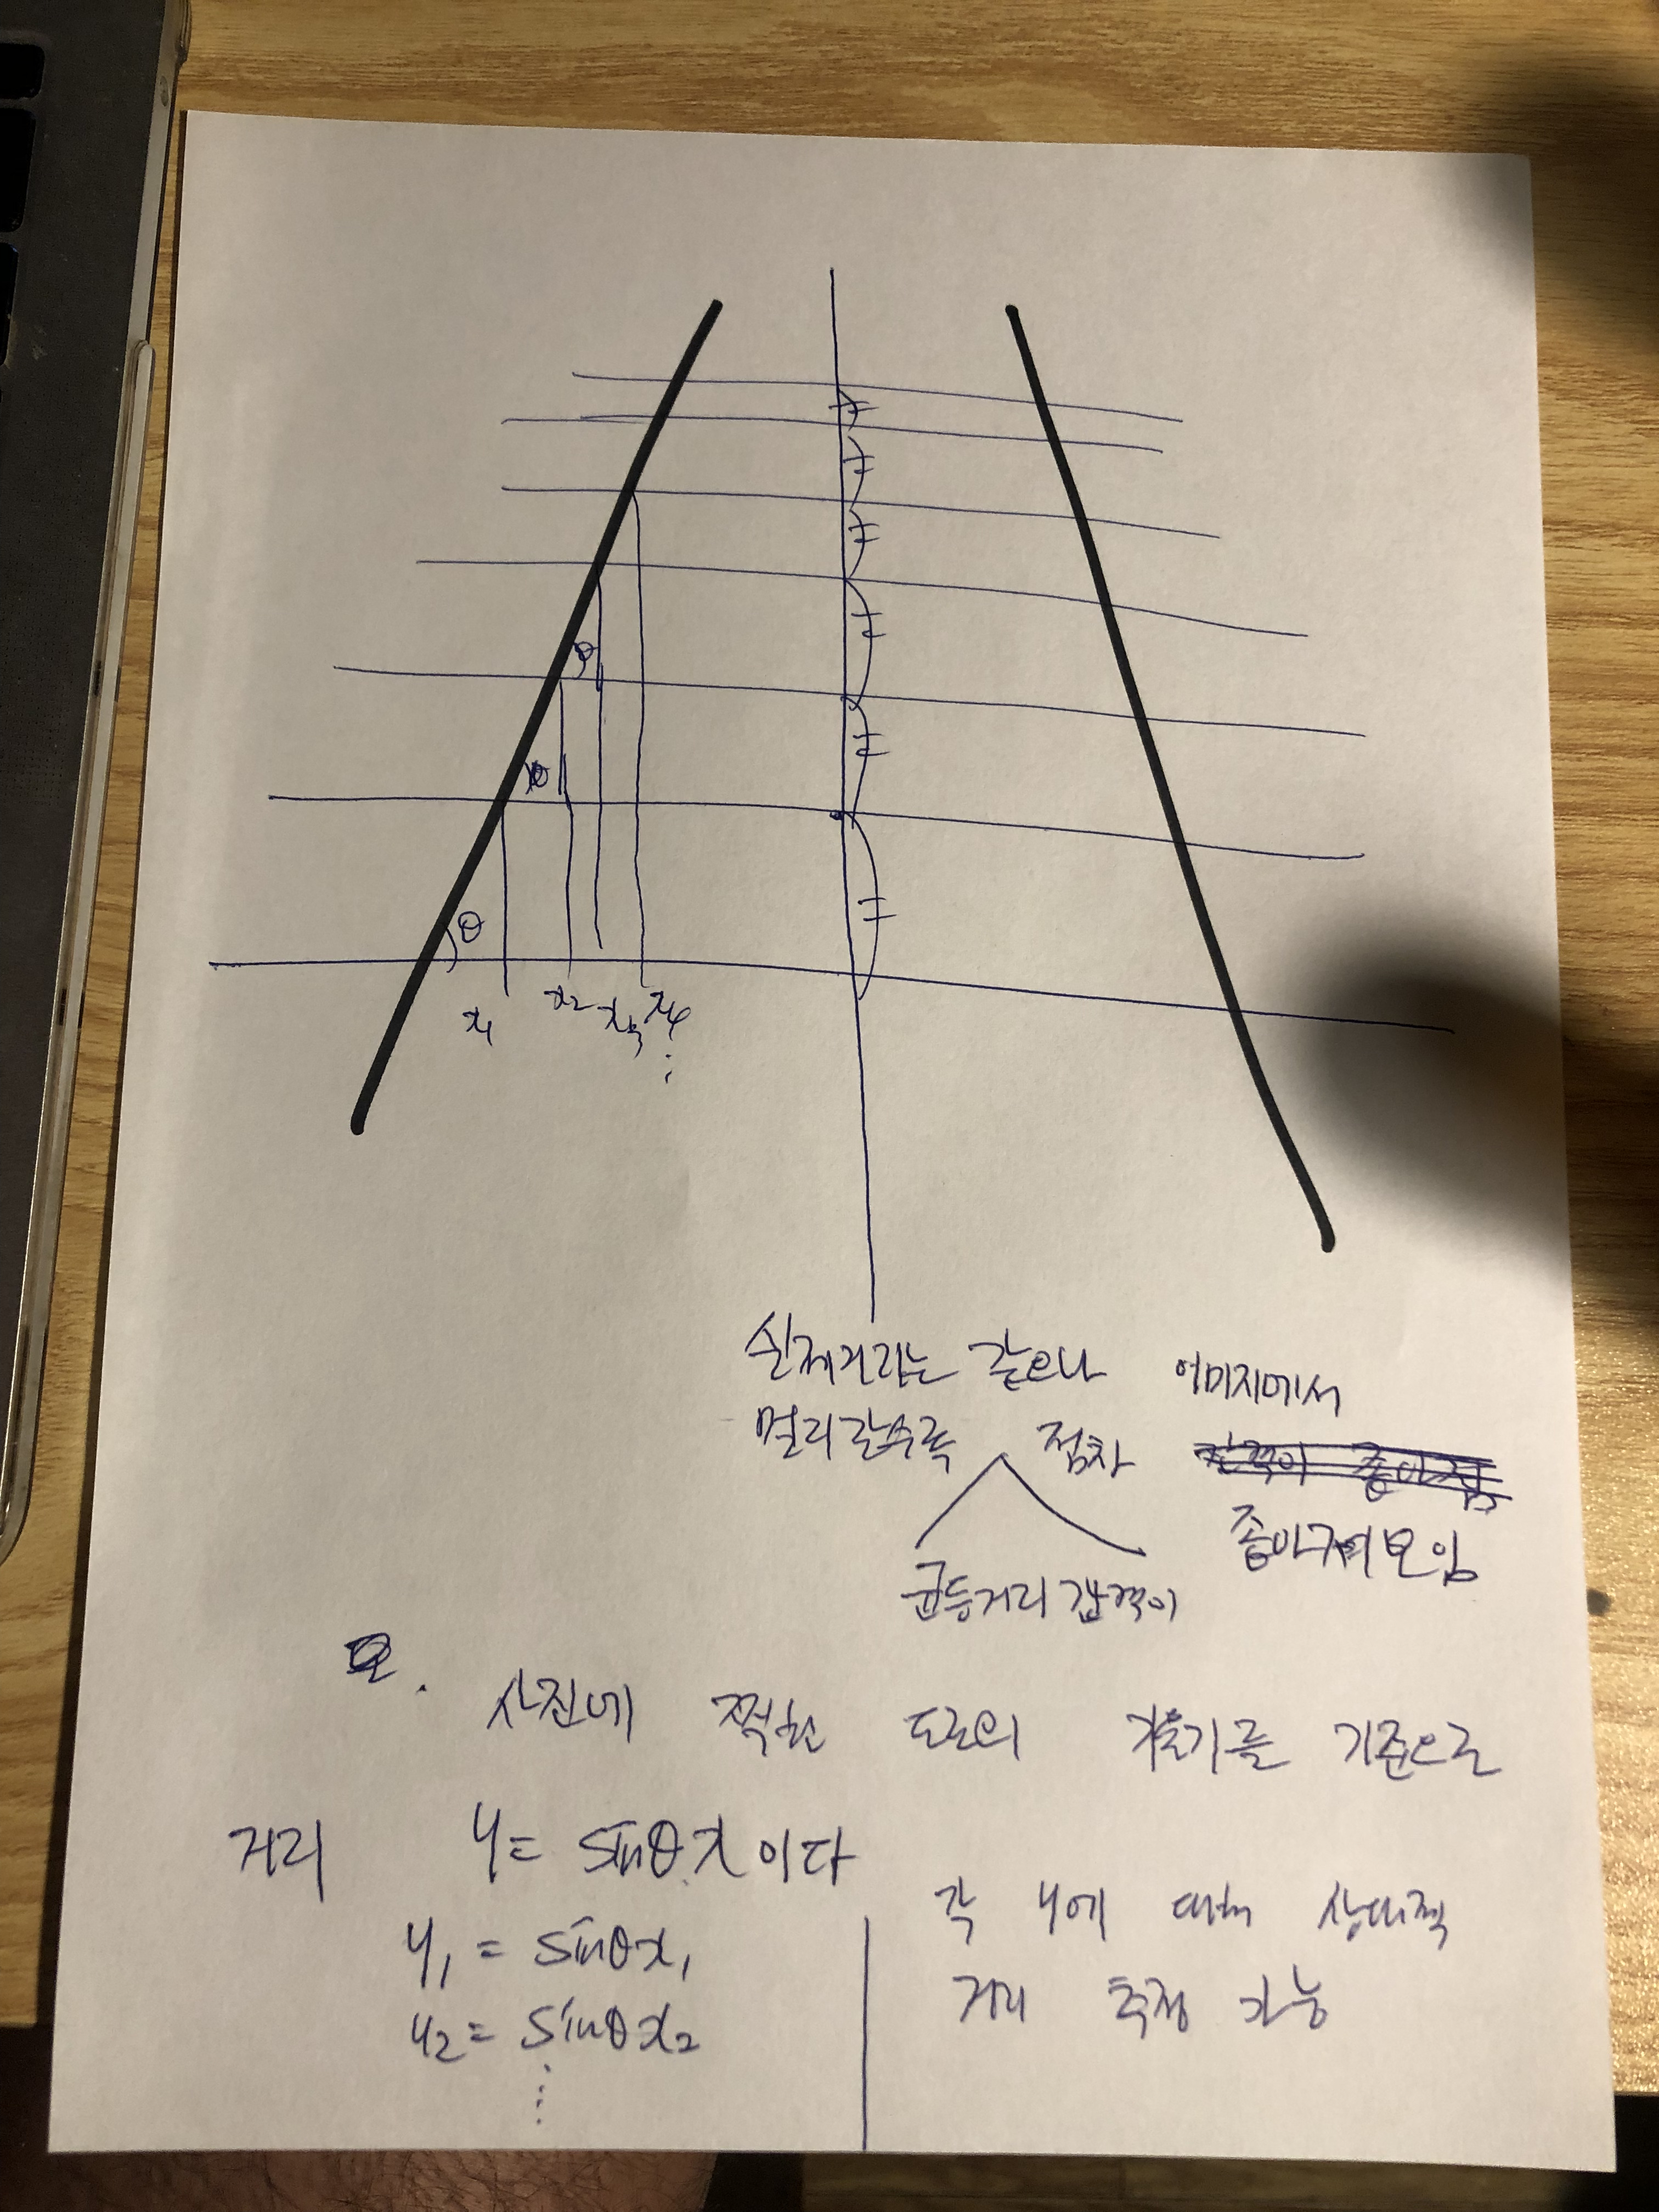 θ
θ
θ
x₁ x₂ x₃ x₄
⋮
실제거리는 같으나 이미지에서
멀리갈수록 점차 간격이 좁아짐
좁아져 보임
균등거리 간격이
사진에 찍힌 도로의 기울기를 기준으로
거리 y = sinθx 이다
y₁ = sinθx₁
y₂ = sinθx₂
⋮
각 y에 대해 상대적
거리 측정 가능